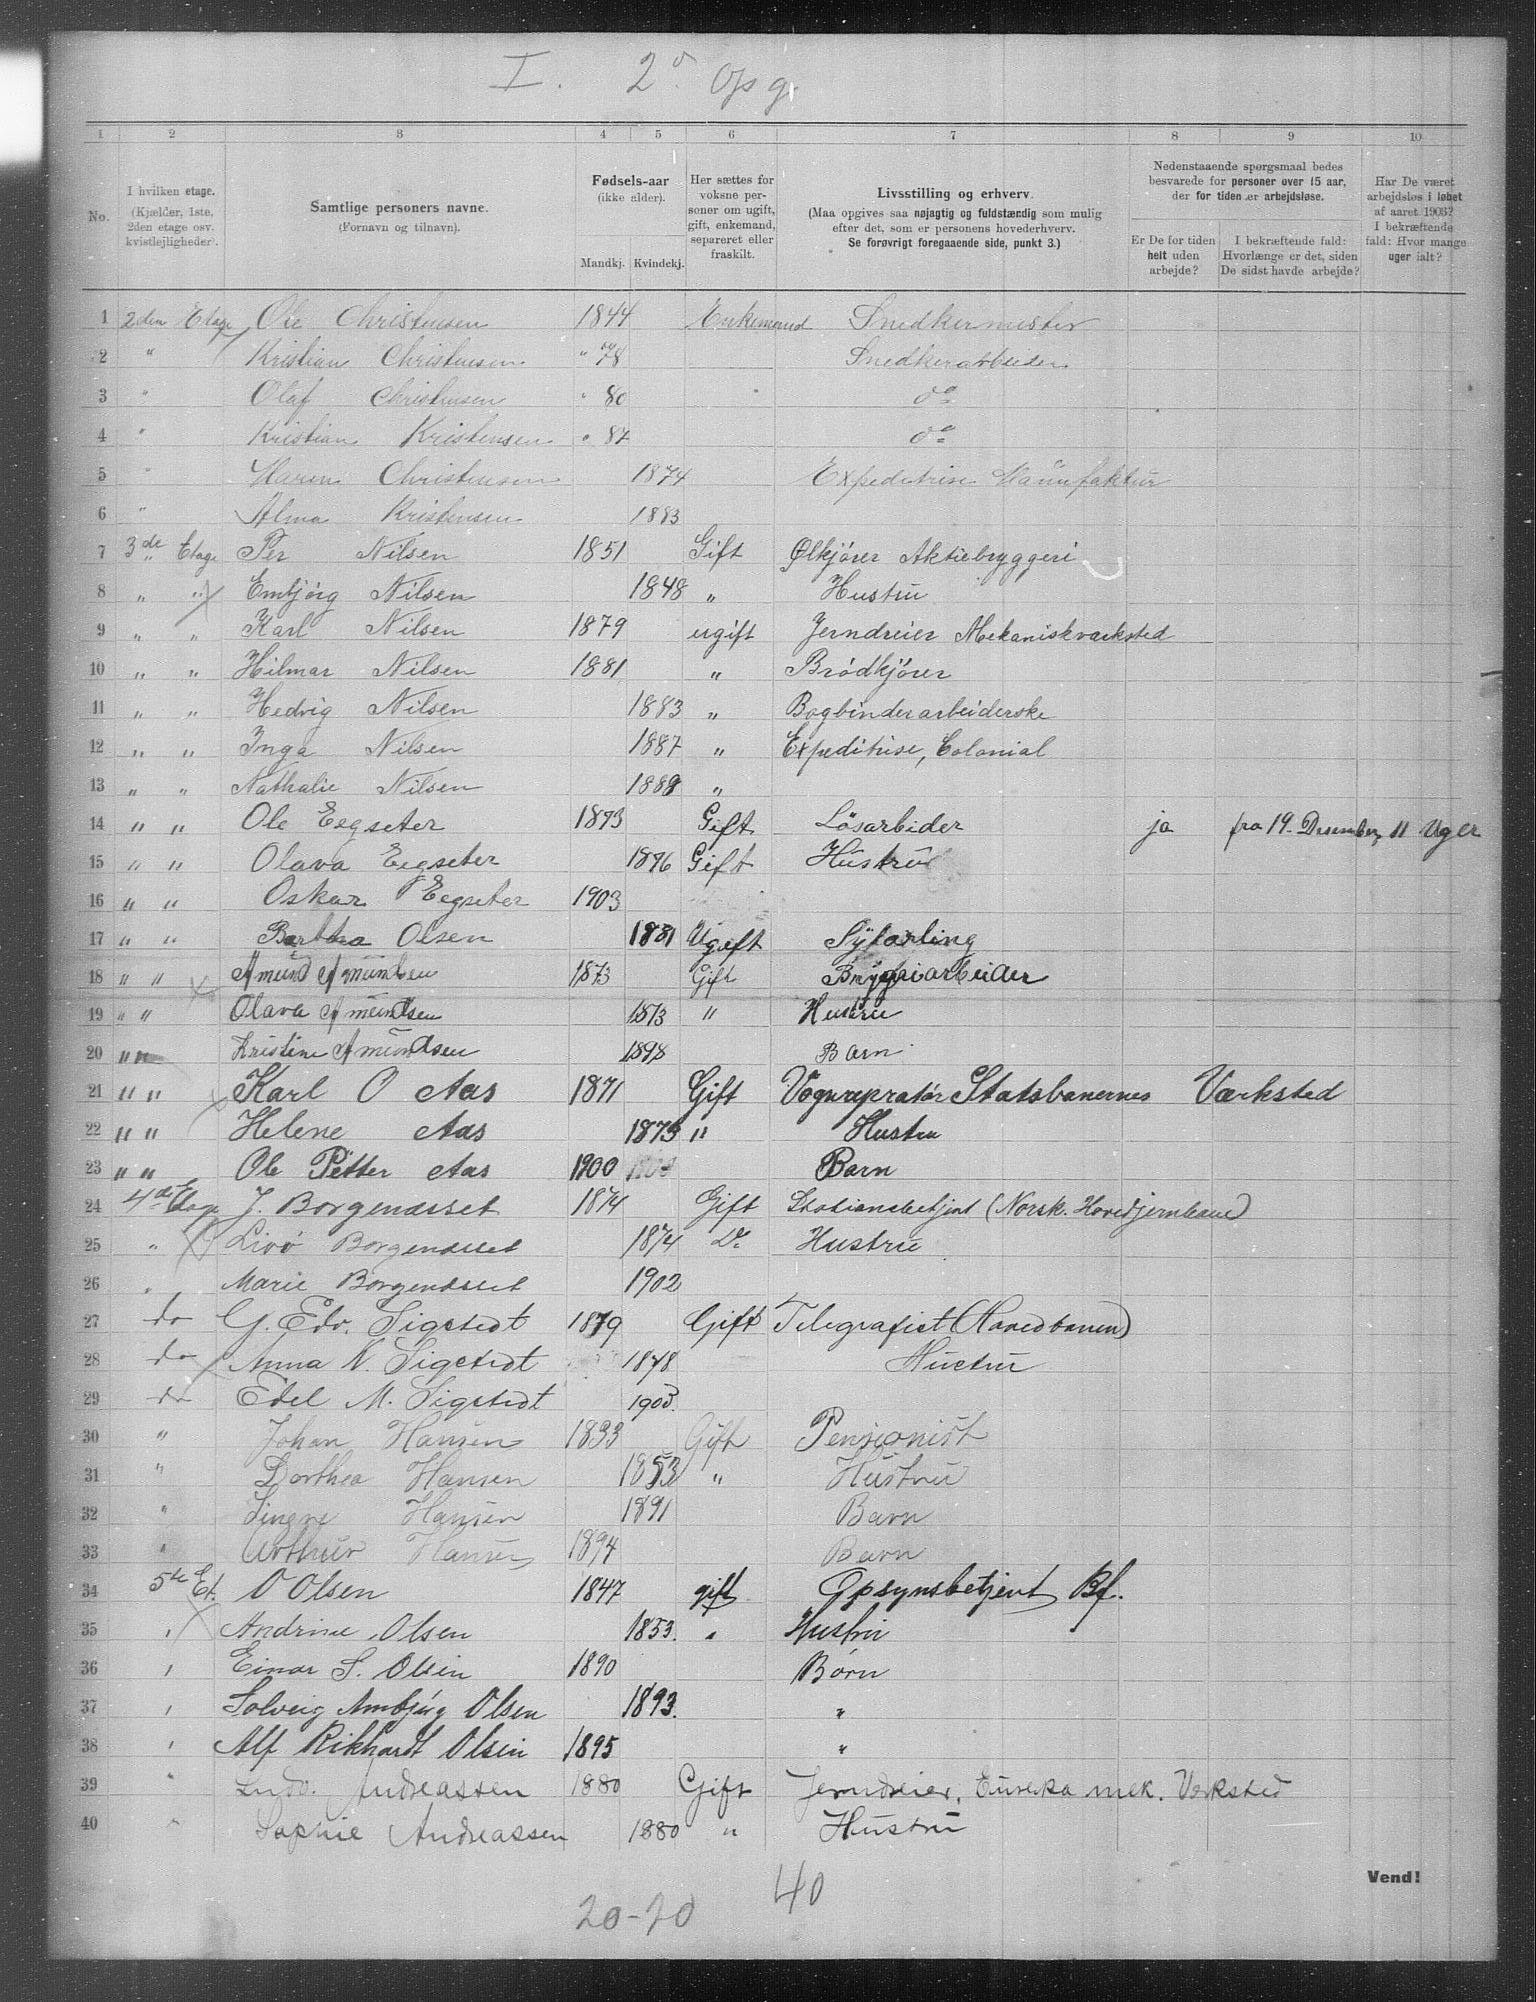 I. 2den Opg.
1 2 3 4 5 6 7 8 9 10
No.
I hvilken etage. (Kjælder, 1ste, 2den etage osv. kvistlejligheder).
Samtlige personers navne. (Fornavn og tilnavn).
Fødsels-aar (ikke alder).
Mandkj. Kvindekj.
Her sættes for voksne personer om ugift, gift, enkemand, separeret eller fraskilt.
Livsstilling og erhverv.
(Maa opgives saa nøjagtig og fuldstændig som mulig efter det, som er personens hovederhverv. Se forøvrigt foregaaende side, punkt 3.)
Nedenstaaende spørgsmaal bedes besvarede for personer over 15 aar, der for tiden er arbejdsløse.
Er De for tiden helt uden arbejde?
I bekræftende fald: Hvorlænge er det, siden De sidst havde arbejde?
Har De været arbejdsløs i løbet af aaret 1903? I bekræftende fald: Hvor mange uger ialt?
1 2den Etage Ole Christensen 1844 Enkemand Snedkermester
2 " Kristian Christensen " 78 Snedkerarbeider
3 " Olaf Christensen " 80 do
4 " Kristian Kristensen " 87 do
5 " Maren Christensen 1874 Expeditrise Manufaktur
6 " Alma Kristensen 1883
7 3de Etage Per Nilsen 1851 Gift Ølkjører Aktiebryggeri
8 " " Embjørg Nilsen 1848 " Hustru
9 " " Karl Nilsen 1879 ugift Jerndreier Mekaniskværksted
10 " " Hilmar Nilsen 1881 " Brødkjører
11 " " Hedvig Nilsen 1883 " Bogbinderarbeiderske
12 " " Inga Nilsen 1887 " Expeditrise, Colonial
13 " " Nathalie Nilsen 1888 "
14 " " Ole Eegseter 1873 Gift Lösarbider ja fra 19. Desember 11 Uger
15 " " Olava Eegseter 1876 Gift Hustru
16 " " Oskar Eegseter 1903
17 " " Bertha Olsen 1881 Ugift Syfarling
18 " " Amund Amundsen 1873 Gift Bryggriarbeider
19 " " Olava Amundsen 1873 " Hustru
20 " " Kristine Amundsen 1898 Barn
21 " " Karl O Aas 1871 Gift Vognrepratör Statsbanernes Værksted
22 " " Helene Aas 1873 " Hustru
23 " " Ole Petter Aas 1900 Barn
24 4de Etage J. Borgenasset 1874 Gift Stationsbetjent (Norsk. Hovedjernbane)
25 " Livø Borgenasset 1874 Do Hustru
26 " Marie Borgenasset 1902
27 do G. Edv. Sigstedt 1879 Gift Telegrafist (Hovedbanen)
28 do Anna N. Sigstedt 1878 Hustru
29 do Edel M. Sigstedt 1903.
30 " Johan Hansen 1833 Gift Pensionist
31 " Dorthea Hansen 1853 " Hustru
32 " Singne Hansen 1891 Barn
33 " Arthur Hansen 1894 Barn
34 5te Et. O Olsen 1847 gift Opsynsbetjent Bf.
35 " Andrine Olsen 1853. " Hustru
36 " Einar S. Olsen 1890 Børn
37 " Solveig Ambjørg Olsen 1893. "
38 " Alf Rikhardt Olsen 1895 "
39 " Ludv. Andreassen 1880 Gift Jerndreier, Eureka mek. Verksted
40 " Sophie Andreassen 1880 " Hustru
Vend!
40
20-20